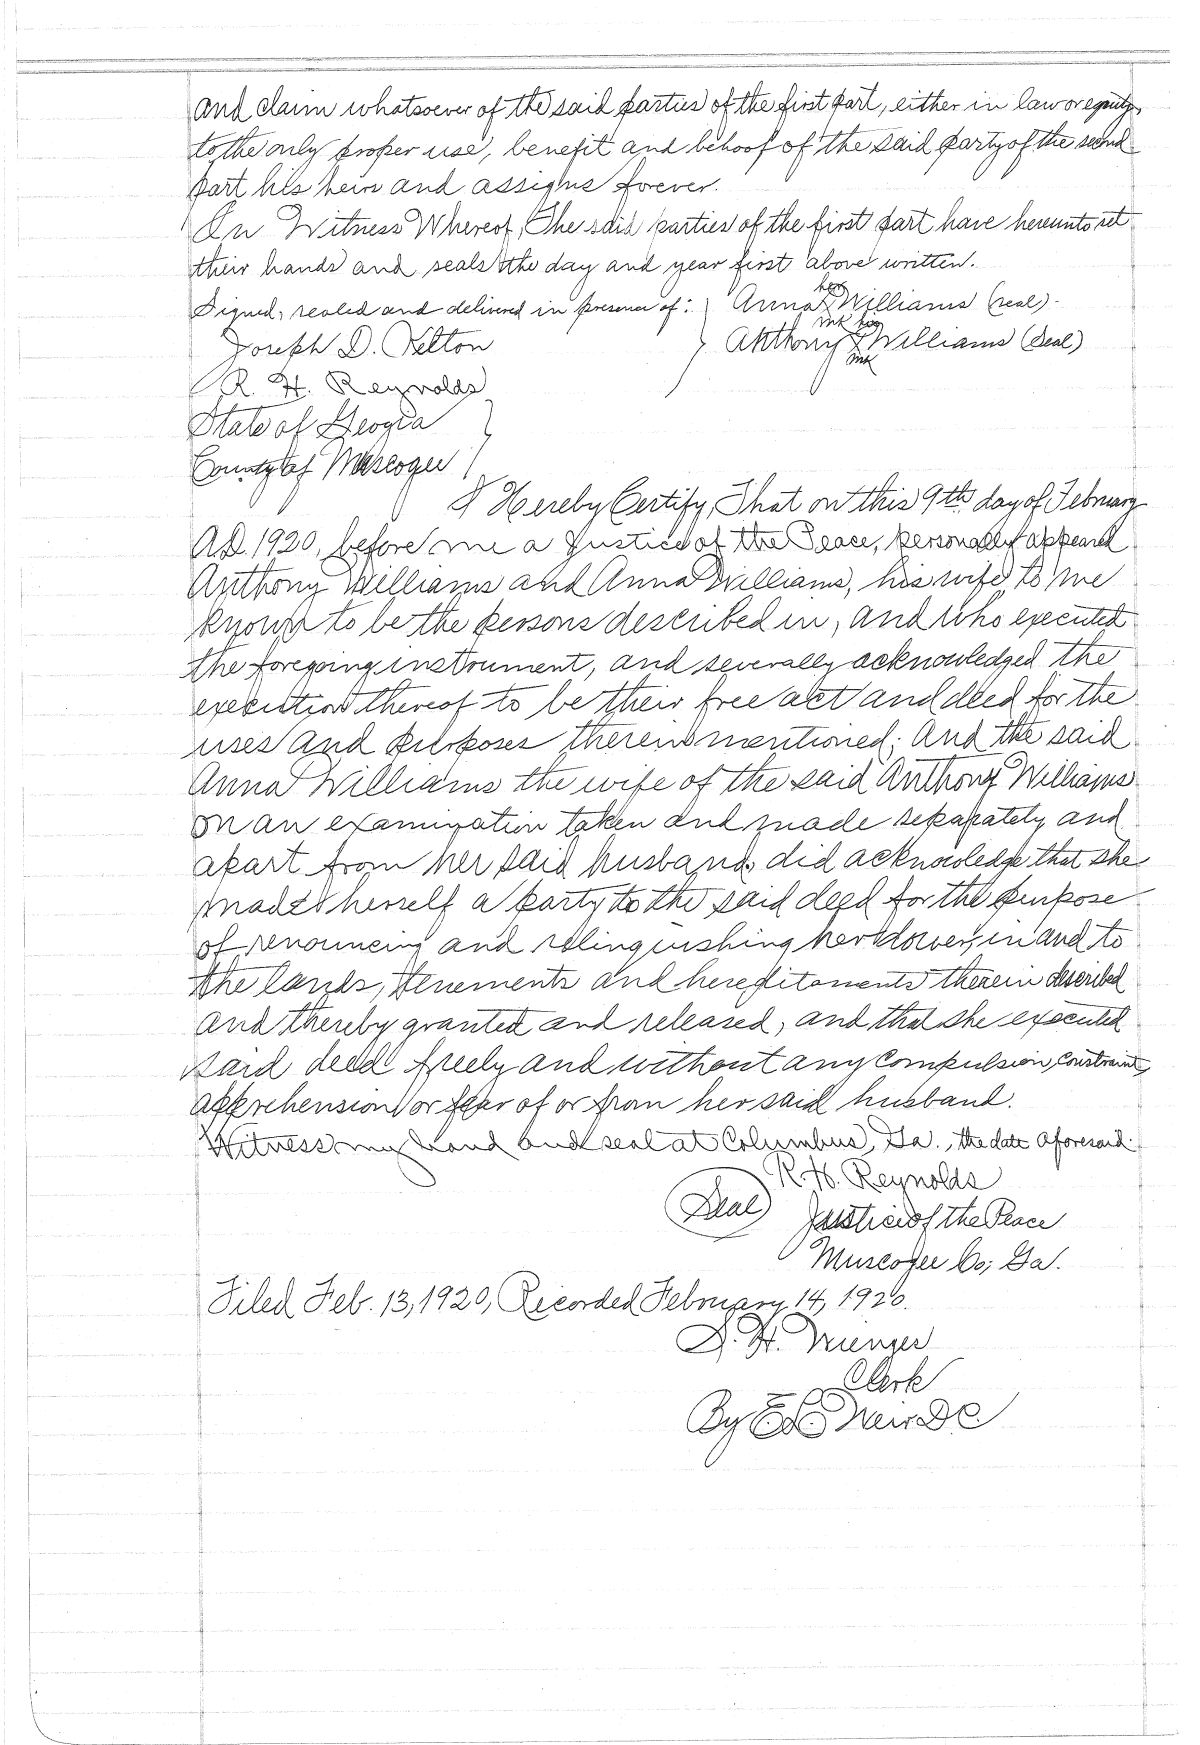 and claim whatsoever of the said parties of the first part, either in law or equity,
to the only proper use, benefit and behoof of the said party of the second
part his heirs and assigns forever.
In Witness Whereof, The said parties of the first part have hereunto set
their hands and seals the day and year first above written.
Signed, sealed and delivered in presence of: ) Anna her X mk Williams (seal)
Joseph D. Kelton ) Anthony his X mk Williams (Seal)
R. H. Reynolds
State of Georgia
County of Muscogee
I Hereby Certify, That on this 9th day of February
A.D. 1920, before me a Justice of the Peace, personally appeared
Anthony Williams and Anna Williams, his wife to me
known to be the persons described in, and who executed
the foregoing instrument, and severally acknowledged the
execution thereof to be their free act and deed for the
uses and purposes therein mentioned; And the said
Anna Williams the wife of the said Anthony Williams
on an examination taken and made separately and
apart from her said husband, did acknowledge that she
made herself a party to the said deed for the purpose
of renouncing and relinquishing her dower, in and to
the lands, tenements and hereditaments therein described
and thereby granted and released, and that she executed
said deed freely and without any compulsion, constraint,
apprehension or fear of or from her said husband.
Witness my hand and seal at Columbus, Ga., the date aforesaid.
R. H. Reynolds
(Seal) Justice of the Peace
Muscogee Co; Ga.
Filed Feb. 13, 1920, Recorded February 14, 1920.
Clerk
By Weir D C